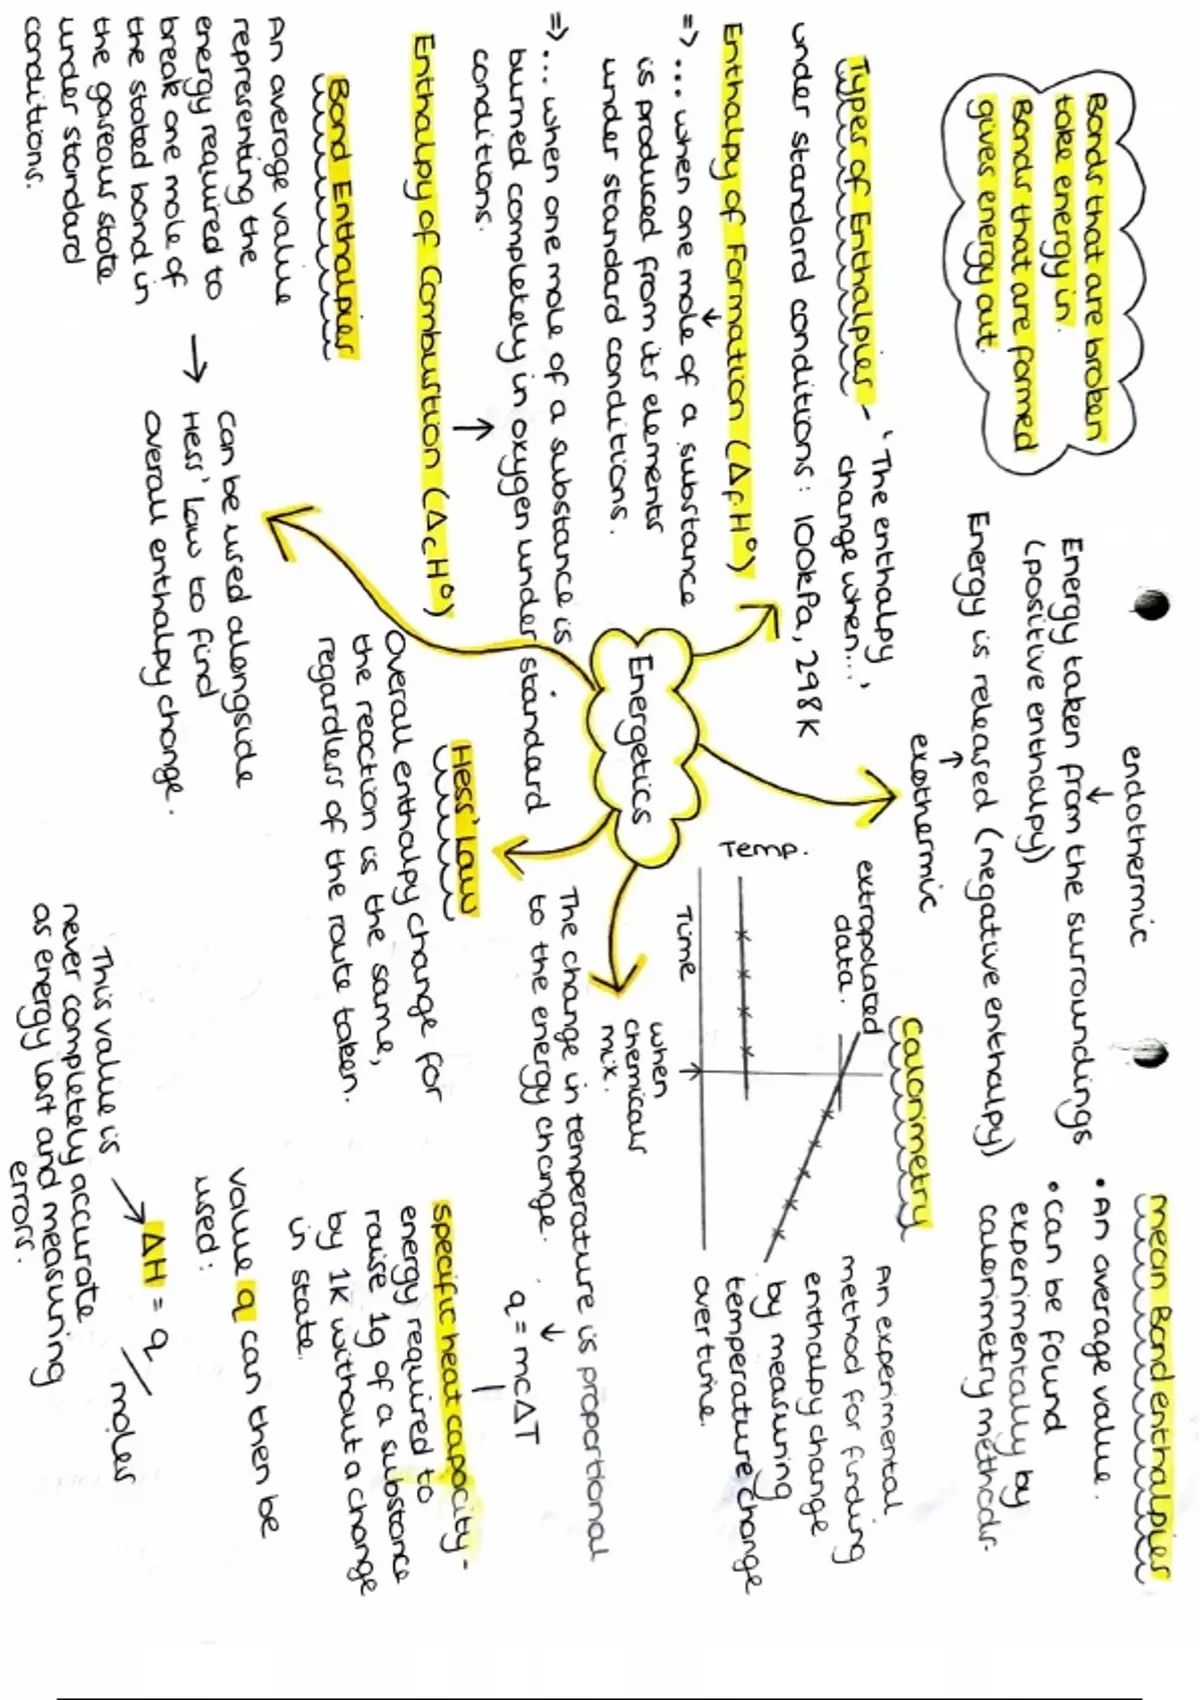 Bonds that are broken
take energy in.
Bonds that are formed
gives energy out.
endothermic
Energy taken from the surroundings
(positive enthalpy)
Energy is released (negative enthalpy)
exothermic
mean Bond enthalpies
• An average value.
• Can be found
experimentally by
calorimetry methods.
Types of Enthalpies - 'The enthalpy
change when...'
under standard conditions: 100kPa, 298K
Enthalpy of Formation (ΔfH°)
=> ... when one mole of a substance
is produced from its elements
under standard conditions.
=> ... when one mole of a substance is
burned completely in oxygen under standard
conditions.
Enthalpy of Combustion (ΔcH°)
Energetics
Calorimetry
extrapolated
data.
Temp.
Time
when
chemicals
mix.
An experimental
method for finding
enthalpy change
by measuring
temperature change
over time.
The change in temperature is proportional
to the energy change.
q = mcΔT
specific heat capacity -
energy required to
raise 1g of a substance
by 1K without a change
in state.
Hess' Law
Overall enthalpy change for
the reaction is the same,
regardless of the route taken.
Bond Enthalpies
An average value
representing the
energy required to
break one mole of
the stated bond in
the gaseous state
under standard
conditions.
Can be used alongside
Hess' Law to find
overall enthalpy change.
Value q can then be
used:
ΔH = q / moles
This value is
never completely accurate
as energy lost and measuring
errors.